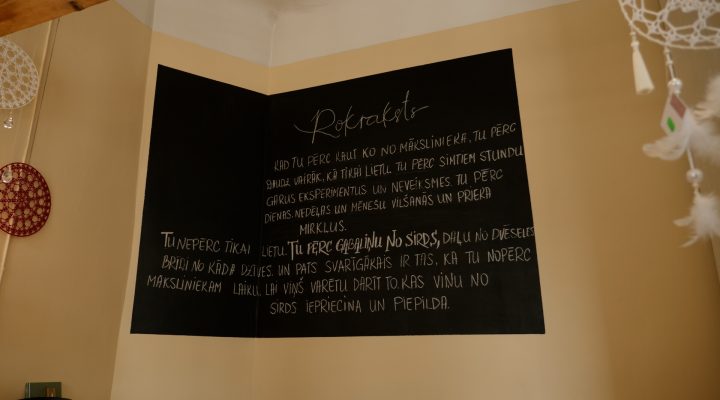 Rokraksts
KAD TU PĒRC KAUT KO NO MĀKSLINIEKA, TU PĒRC
DAUDZ VAIRĀK, KĀ TIKAI LIETU. TU PĒRC SIMTIEM STUNDU
GARUS EKSPERIMENTUS UN NEVEIKSMES. TU PĒRC
DIENAS, NEDĒĻAS UN MĒNEŠU VILŠANĀS UN PRIEKA
MIRKĻUS.
TU NEPĒRC TIKAI LIETU. TU PĒRC GABALIŅU NO SIRDS, DAĻU NO DVĒSELES
BRĪDI NO KĀDA DZĪVES. UN PATS SVARĪGĀKAIS IR TAS, KA TU NOPĒRC
MĀKSLINIEKAM LAIKU, LAI VIŅŠ VARĒTU DARĪT TO, KAS VIŅU NO
SIRDS IEPRIECINA UN PIEPILDA.